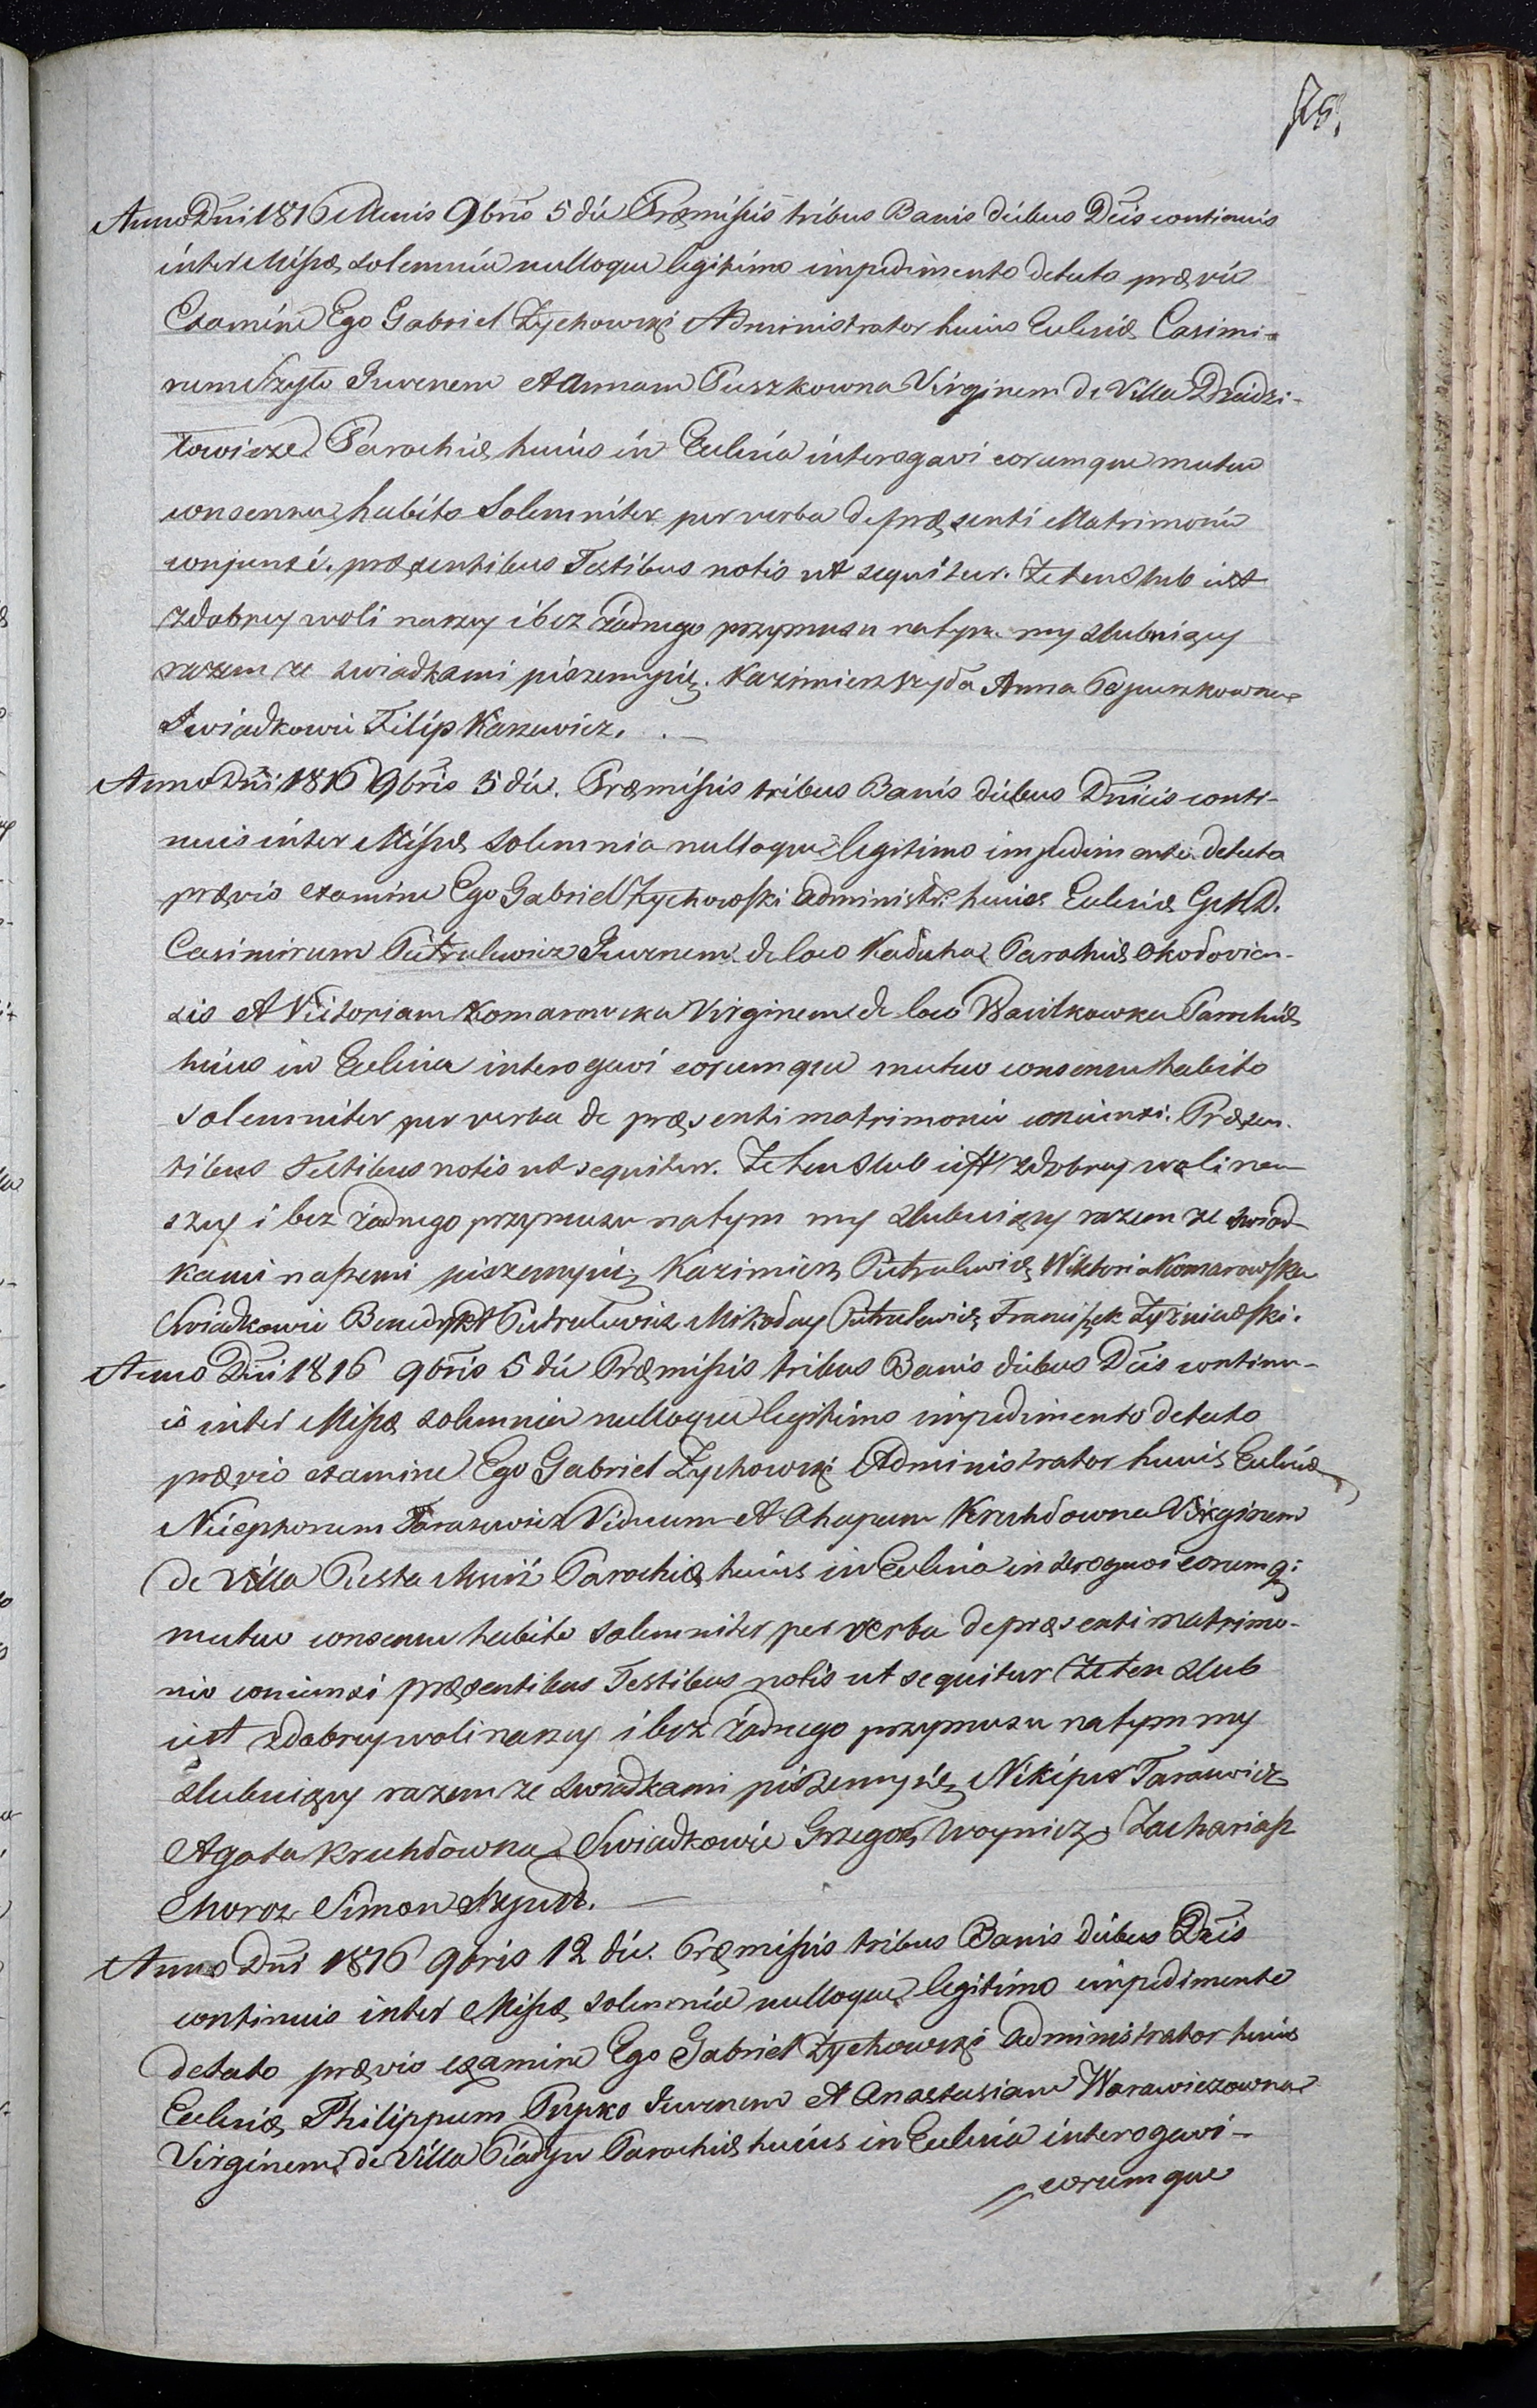 25.
Anno Dni 1816 Mensis 9bris 5 die Præmissis tribus Banis diebus Dcis continuis
inter Missæ solemnia nulloque legitimo impedimento detecto prævio
Examine Ego Gabriel Zychowski Administrator huius Ecclesiæ Casimi-
rum Szyło Juvenem et Annam Puszkowna Virginem de Villa Dzi
towicze Parochiæ huius in Ecclesia interogavi eorumque mutuo
consensu habito Solemniter per verba de præsenti Matrimonio
conjunxi. præsentibus Testibus notis ut sequitur. Ze ten Slub iest
zdobrey woli naszey i bez żadnego przymusu natym my slubuiący
razem ze swiadkami piszemysię. Kazimierz Szyła Anna Puszkowna
Swiadkowie Filip Karzewicz.
Anno Dni 1816 9bris 5 die. Præmissis tribus Banis diebus Dnicis conti-
nuis inter Missæ Solemnia nulloque legitimo impedimento detecto
prævio examine Ego Gabriel Zychowski administr: huius Ecclesiæ
Casimirum Pietralewicz Juvenem de loco Kaducha Parochiæ Okołovien-
sis et Victoriam Komarowska Virginem de loco Wasilkowka Parochiæ
huius in Ecclesia interogavi eorumque mutuo consensu habito
solemniter per verba de præsenti matrimonio coniunxi. Præsen-
tibus Testibus notis ut sequitur. Ze ten Slub iest zdobrey woli na
szey i bez żadnego przymusu natym my slubuiący razem ze swiad-
kami naszemi piszemysię Kazimierz Pietralewicz Wiktoria Komarowska
Swiadkowie Benedykt Pietralewicz Mikołay Pietralewicz Franciszek Zyzniewski.
Anno Dni 1816 9bris 5 die Præmissis tribus Banis diebus Dcis continu-
is inter Missæ solemnia nulloque legitimo impedimento detecto
prævio examine Ego Gabriel Zychowski Administrator huius Ecclesiæ
Nicephorum Tarasewicz Viduum et Ahapam Kruhłowna Virginem
de Villa Pusta Parochiæ huius in Ecclesia interogavi eorumq:
mutuo consensu habito solemniter per verba de præsenti matrimo-
nio coniunxi præsentibus Testibus notis ut sequitur Ze ten slub
iest zdobrey woli naszey i bez żadnego przymusu natym my
slubuiący razem ze swiadkami piszemysię Nikipor Tarasewicz
Agata Kruhłowna Swiadkowie Grzegorz Woynicz Zachariasz
Moroz Simon
Anno Dni 1816 9bris 12 die. Præmissis tribus Banis diebus Dcis
continuis inter Missæ solemnia nulloque legitimo impedimento
detecto prævio examine Ego Gabriel Zychowski administrator huius
Ecclesiæ Philippum Pupko Juvenem et Anastasiam Warawiczowna
Virginem de Villa Parochiæ huius in Ecclesia interogavi
eorumque